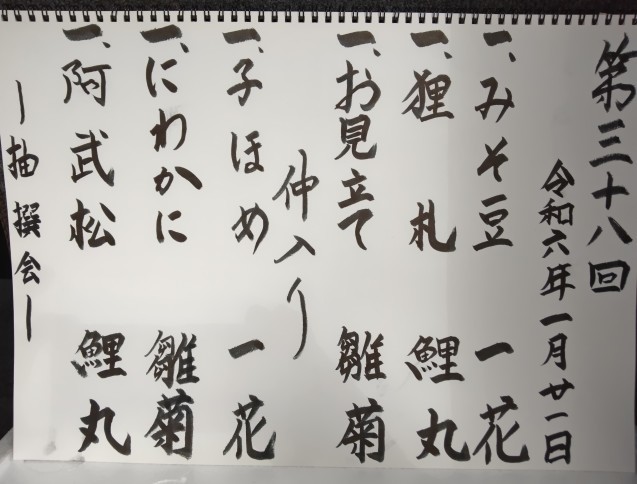 第三十八回
令和六年一月廿一日
一、みそ豆 一花
一、狸札 鯉丸
一、お見立て 雛菊
仲入り
一、子ほめ 一花
一、にわかに 雛菊
一、阿武松 鯉丸
ー抽撰会ー